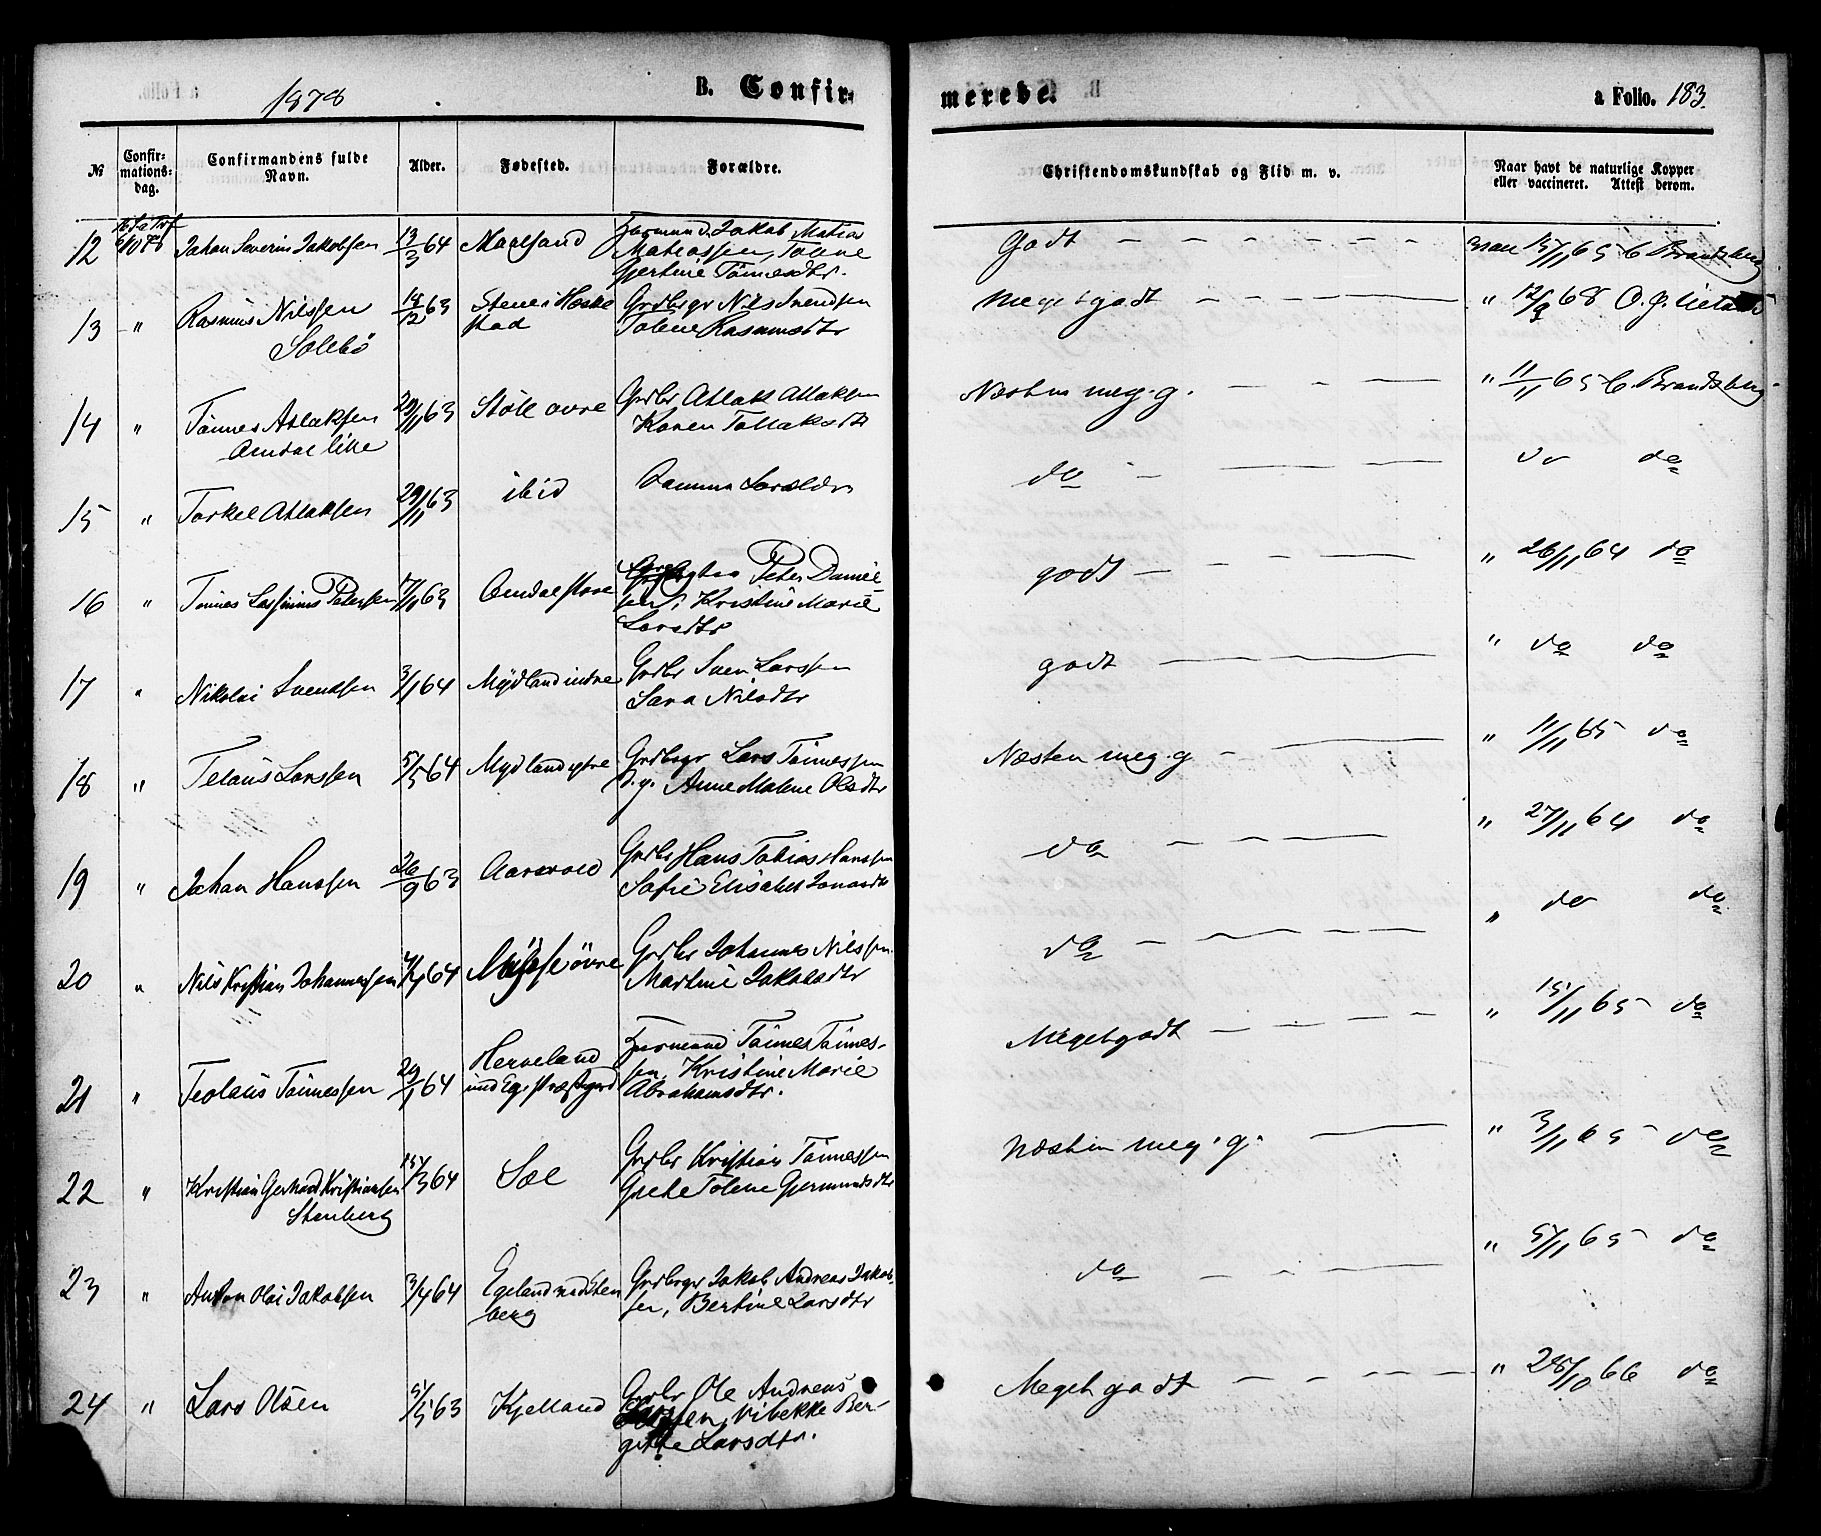 1878
B. Confir=
merede.
a Folio. 183.
№
Confir=
mations=
dag.
Confirmandens fulde
Navn.
Alder.
Fødested.
Forældre.
Christendomskundskab og Flid m. v.
Naar havt de naturlige Kopper
eller vaccineret. Attest derom.
12 6/10 78 Johan Severin Jakobsen 13/3 64 Maalsand Jakob Matias
Matiassen, Tolene
Gertine Tönnesdtr.
Godt vac 15/11 65 C Brandsberg
13 " Rasmus Nilssen
Solebö
18/12 63 Stene i Heske
stad
Grdbgr Nils Svendsen
Tolene Rasmusdtr
Meget godt " 12/9 68
14 " Tönnes Atlaksen
Amdal lille
29/11 63 Stöle övre Grdbr Atlak Atlaksen
Karen Tollaksdtr
Næsten meg. g. " 11/11 65 C Brandsberg
15 " Torkel Atlaksen 29/11 63 ibid Samme Foreldre
do do do
16 " Tönnes Petersen 7/11 63 Amdal store Peter Daniel
sen, Kristine Marie
Larsdtr
godt " 26/11 64 do
17 " Nikolai Svendsen 3/1 64 Mydland indre Grdbr Sven Larssen
Sara Nilsdtr
godt " do do
18 " Telaus Larssen 5/5 64 Mydland ytre Grdbgr Lars Tönnessen
Anne Malene Olsdtr
Næsten meg. g " 11/11 65 do
19 " Johan Hanssen 26/9 63 Aarsvold Grdbr Hans Tobias Hanssen
Sofie Elisabet Jonasdtr
do " 27/11 64 do
20 " Nils Kristian Johannessen 64 Mysse övre Grdbr Johannes Nilssen
Martine Jakobsdtr
do " do do
21 " Teolaus Tönnessen 29/1 64 Herveland
und Eg. præstgrd
Husmand Tönnes Tönnes-
sen, Kristine Marie
Abrahamsdtr.
Meget godt " 15/11 65 do
22 " Kristian Gerhard Kristiansen
Stenberg
15/3 64 Sæl Grdbr Kristian Tönnessen
Grete Tolene Gjermundsdtr
Næsten meg. g. " 3/11 65 do
23 " Anton Olai Jakobsen 3/4 64 Egeland und Sten
berg
Grdbgr Jakob Andreas Jakob
sen, Bertine Larsdtr
do " 5/11 65 do
24 " Lars Olsen 5/5 63 Kjelland Grdbr Ole Andreas
Larssen, Vibekke Ber-
gitte Larsdtr.
Meget godt " 28/10 66 do